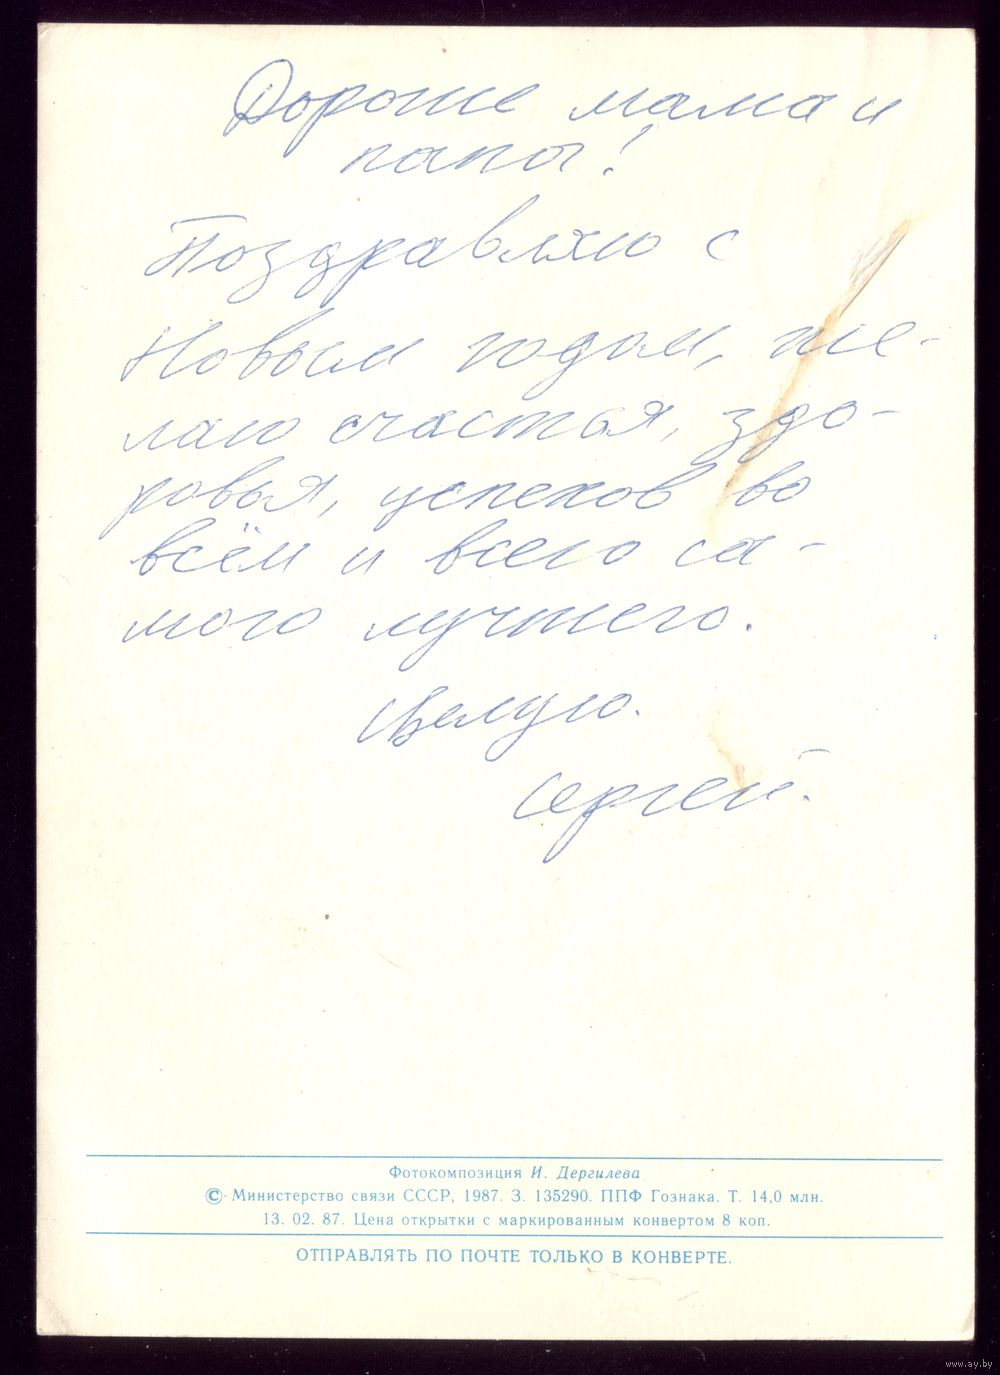 Дорогие мама и
папа!
Поздравляю с
Новым годом, же-
лаю счастья, здо-
ровья, успехов во
всём и всего са-
мого лучшего.
Целую.
Сергей.
Фотокомпозиция И. Дергилева
© Министерство связи СССР, 1987. З. 135290. ППФ Гознака. Т. 14,0 млн.
13. 02. 87. Цена открытки с маркированным конвертом 8 коп.
ОТПРАВЛЯТЬ ПО ПОЧТЕ ТОЛЬКО В КОНВЕРТЕ.
www.ay.by